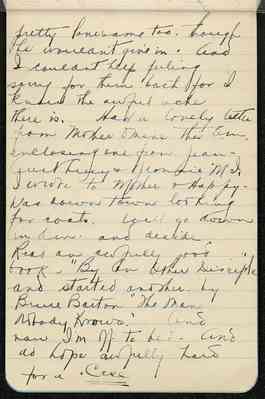 pretty lonesome too. though
he wouldn't give in. And
I couldn't help feeling
sorry for them both for I
know the awful ache
there is. Had a lovely letter
from Mother & mine this Eve.
enclosing one from Jean -
just
I wrote to Mother & Happy -
Was down town looking
for coats. Will go down
and decide.
Read an awfully good
book - "By an Disciple"
and started another by
Bruce Barton "The Man
Nobody Knows." And
now I'm off to bed. And
do hope awfully hard
for a